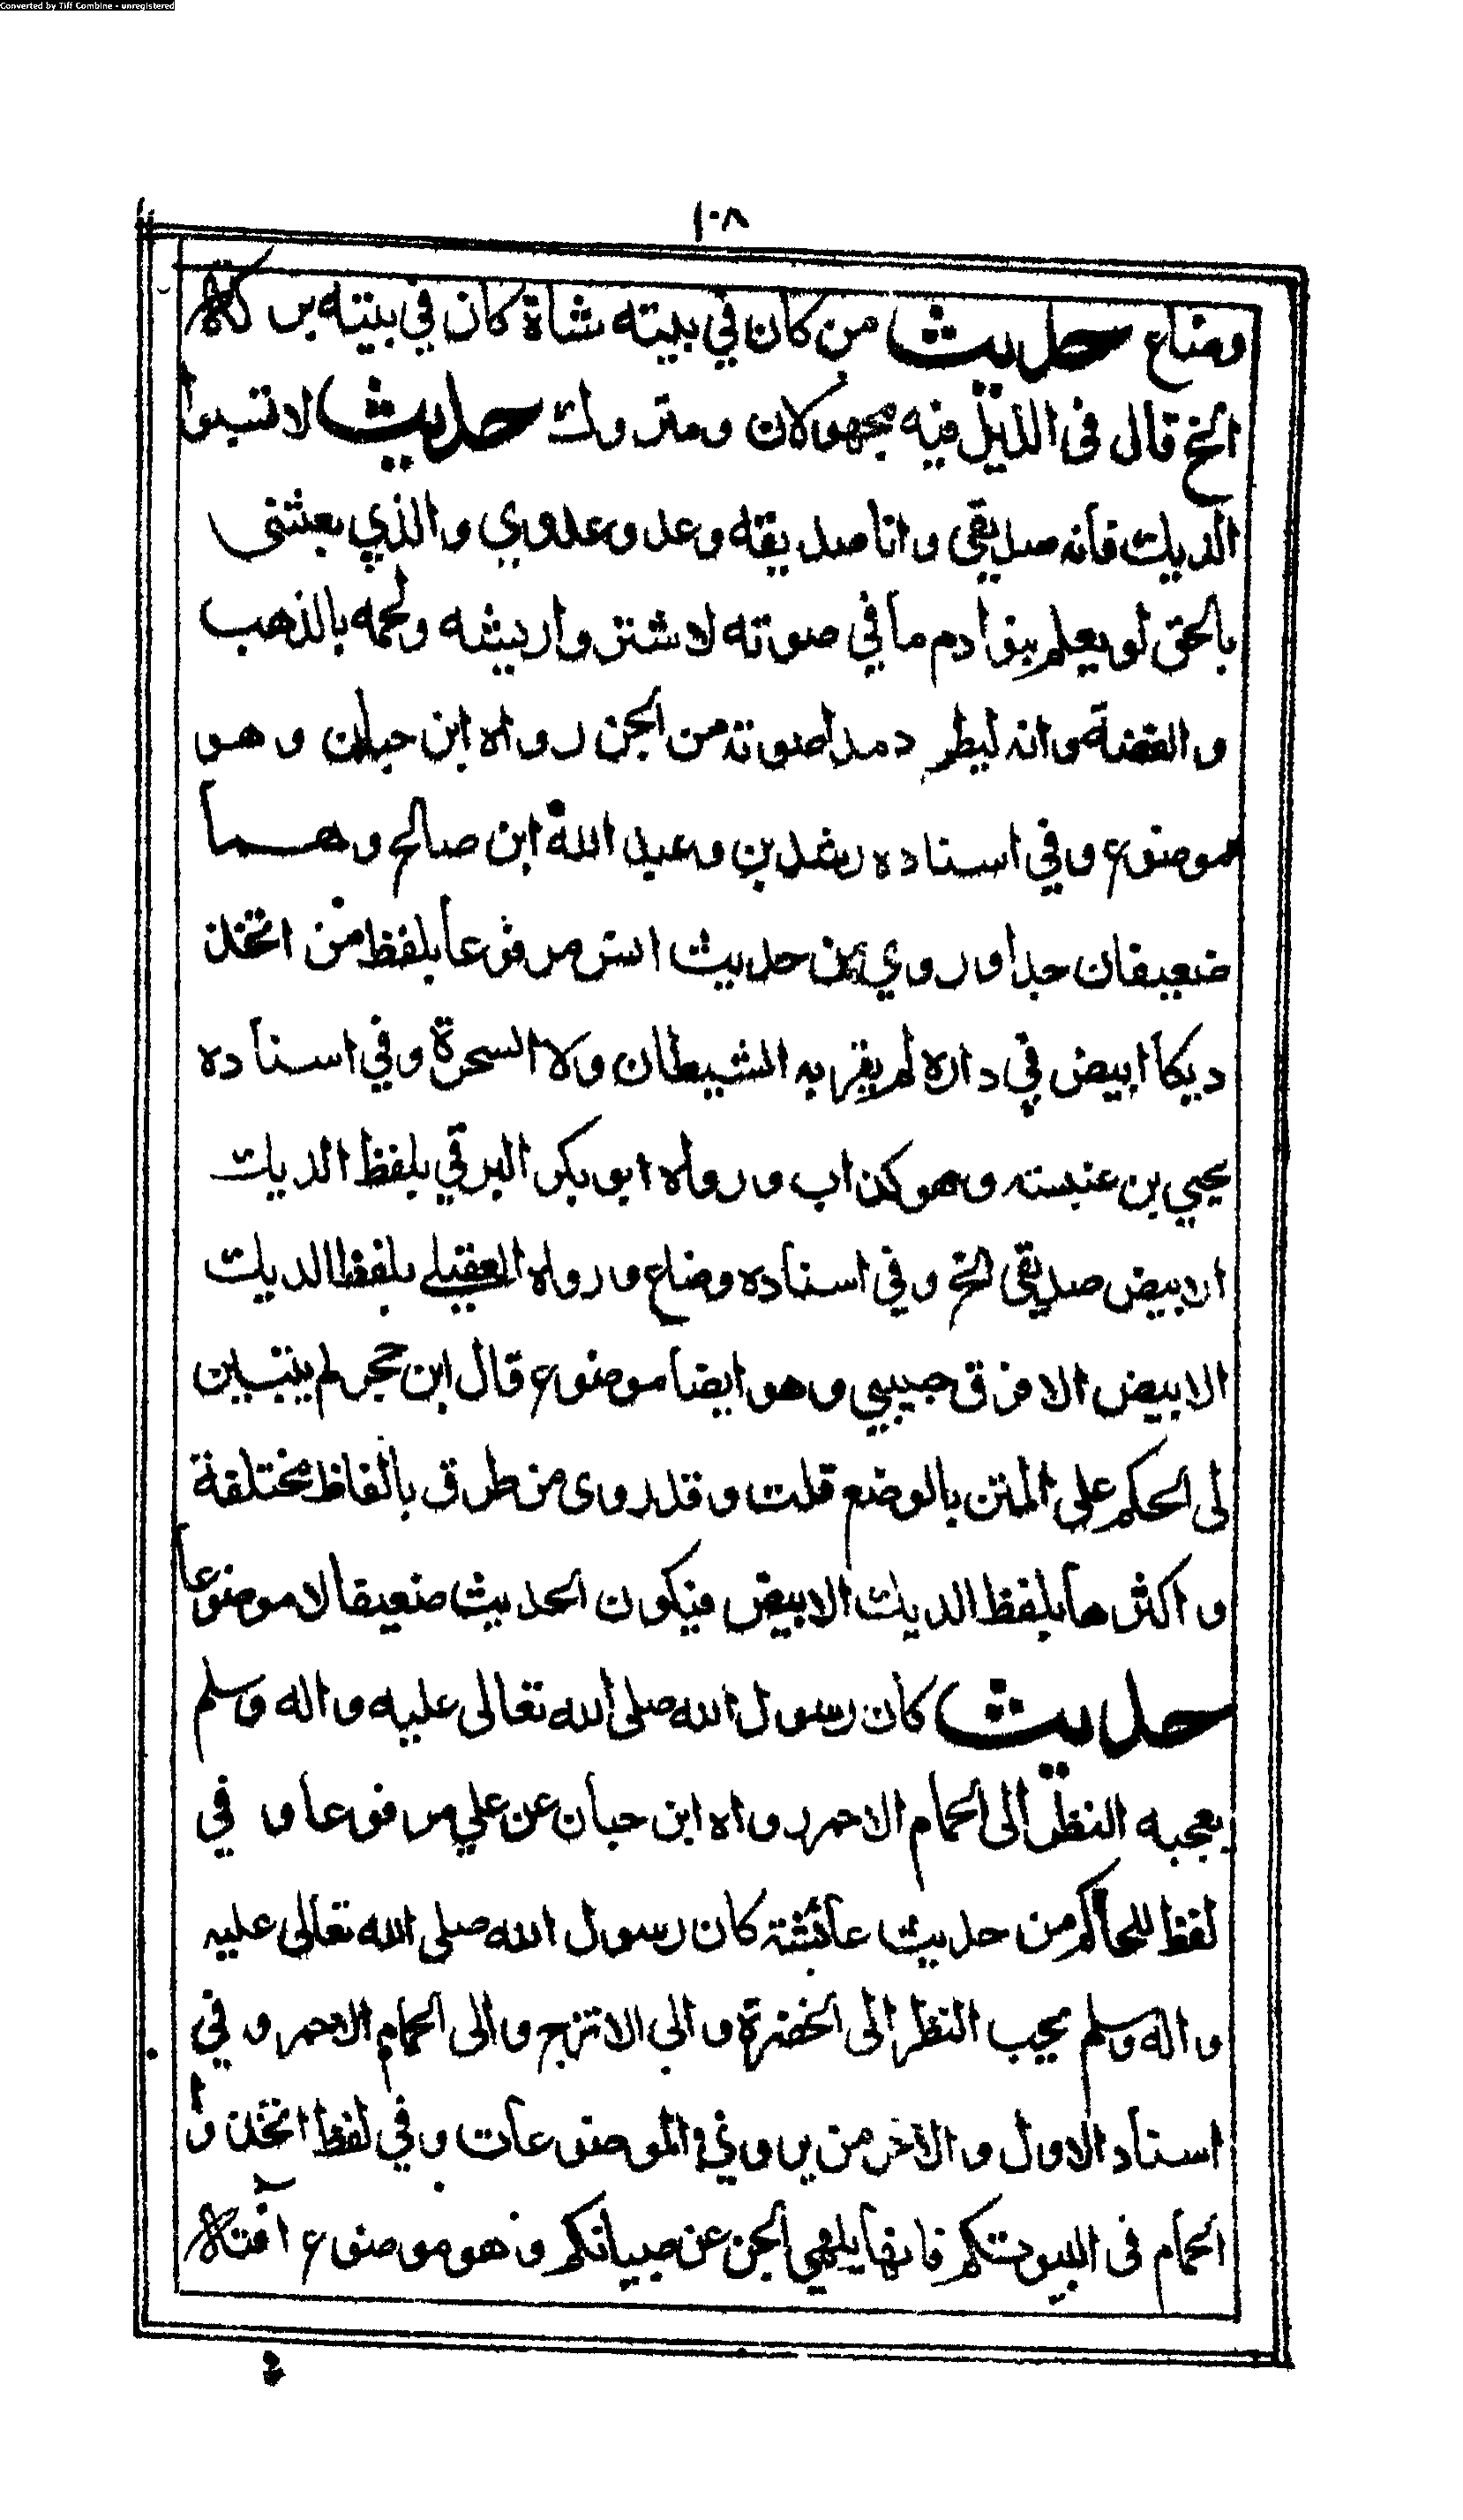 Converted by Tiff Combine - unregistered
١٠٨
وضاع حديث من كان في بيته شاة كان في بيته بركة
الخ قال فى الذيل فيه مجهولان ومتروك حديث لا تسبوا
الديك فأنه صديقى وانا صديقه وعدوه عدوي والذي بعثنى
بالحق لو يعلم بنوادم ما في صوته لاشتروا ريشه ولحمه بالذهب
والفضة وانه ليطرد مدا صوته من الجن رواه ابن حبان وهو
موضوع وفي اسناده رشدين وعبد الله ابن صالح وهما
ضعيفان جدا وروي من حديث انس مرفوعا بلفظ من اتخذ
ديكا ابيض في داره لم يقربه الشيطان ولا السحرة وفي اسناده
يحيي بن عنبسه وهو كذاب ورواه ابو بكر البرقي بلفظ الديك
الابيض صديقى الخ وفي اسناده وضاع ورواه العقيلي بلفظ الديك
الابيض الافرق حبيبي وهو ايضا موضوع قال ابن حجر لم يتبين
لى الحكم على المتن بالوضع قلت وقد روى من طرق بالفاظ مختلفة
واكثرها بلفظ الديك الابيض فيكون الحديث ضعيفا لا موضوعا
حديث كان رسول الله صلى الله تعالى عليه واله وسلم
يعجبه النظر الى الحمام الاحمر رواه ابن حبان عن علي مرفوعا وفي
لفظ للحاكم من حديث عائشة كان رسول الله صلى الله تعالى عليه
واله وسلم يحب النظر الى الخضرة والي الاترج والى الحمام الاحمر وفي
اسناد الاول والآخر من يروي في الموضوعات وفي لفظ اتخذوا
الحمام فى البيوتكم فانها يلهي الجن عن صبيانكم وهو موضوع آفته